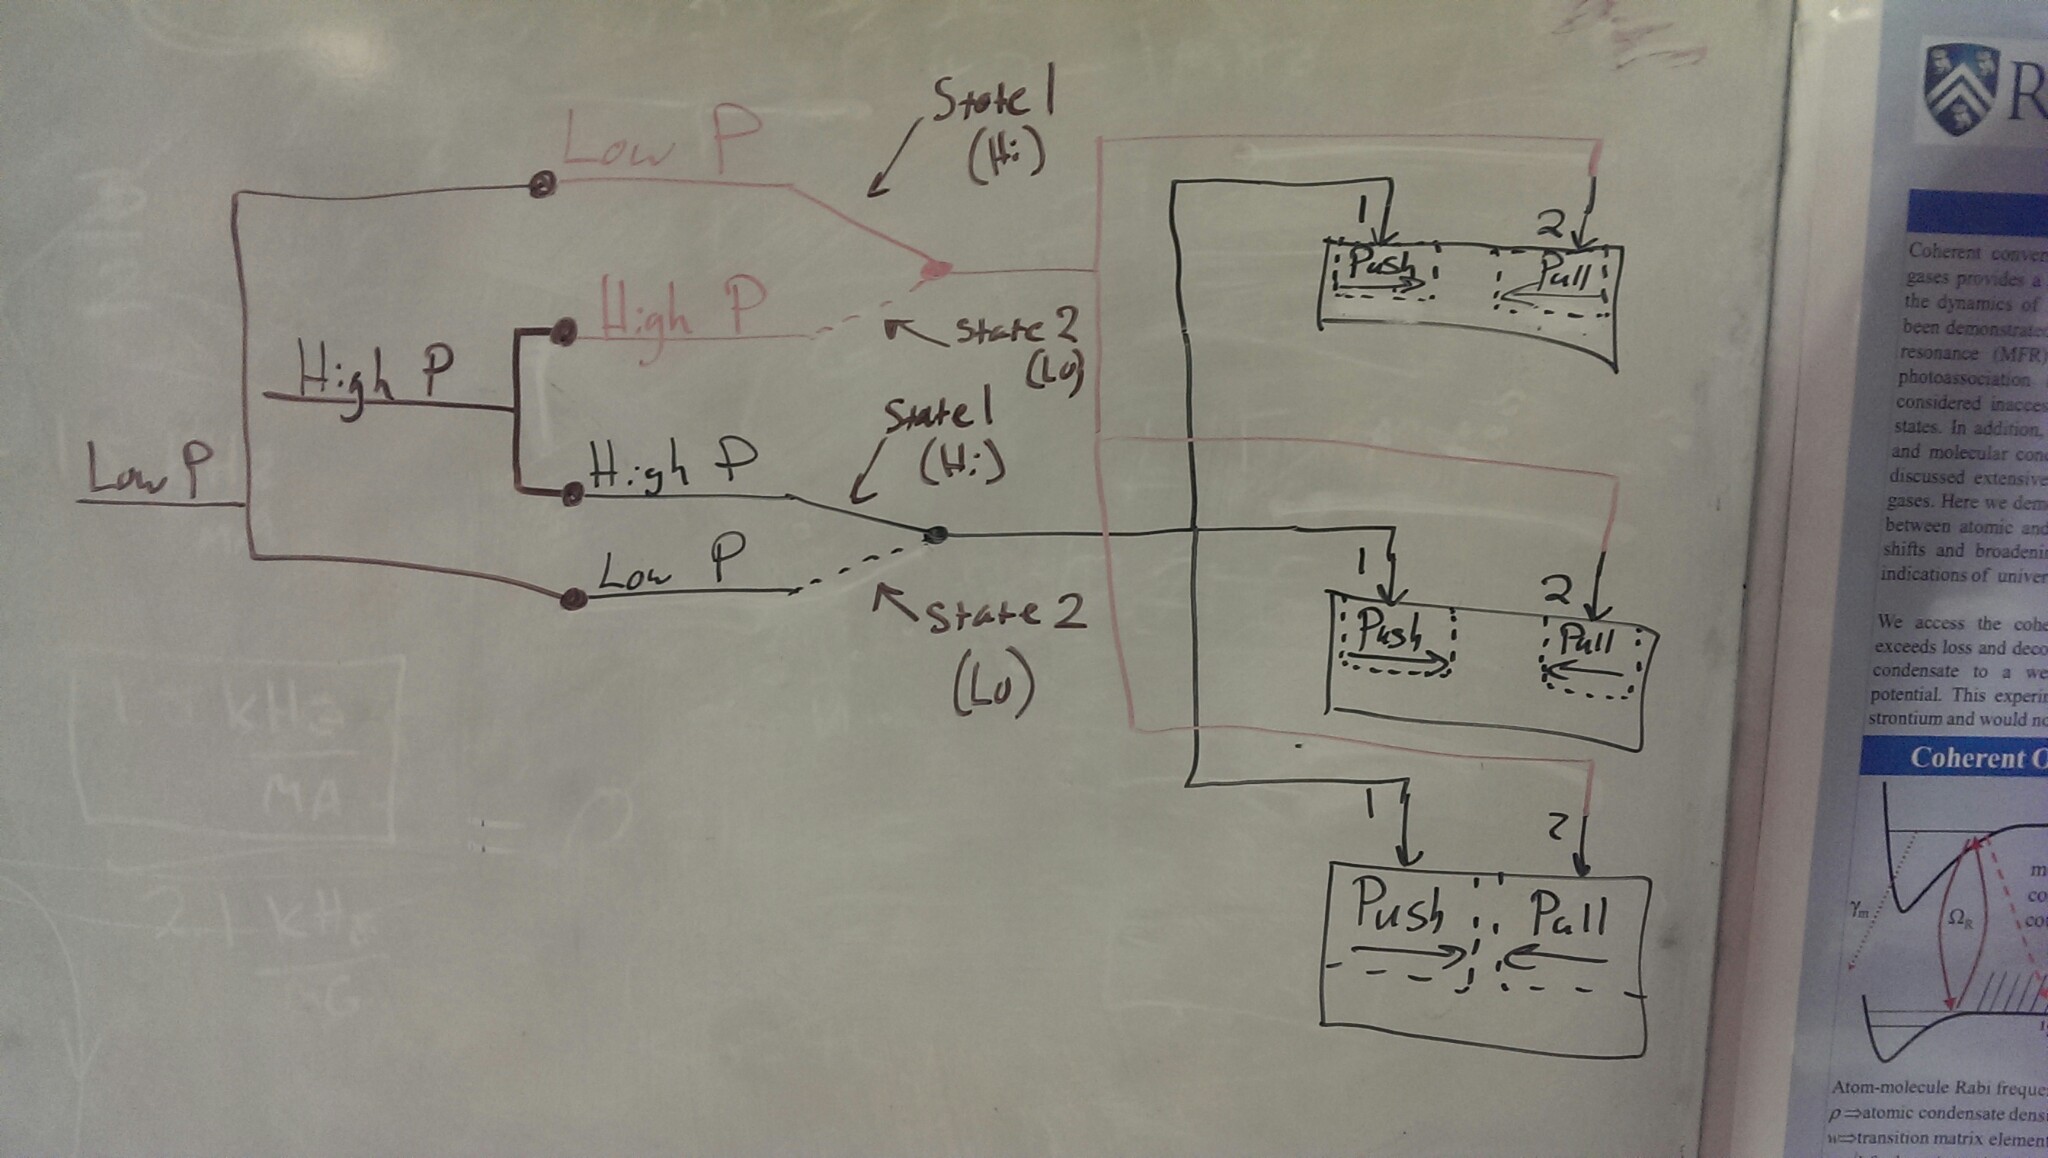 Low P
State 1
(Hi)
High P
State 2
(Lo)
High P
Low P
State 1
(Hi)
High P
Low P
State 2
(Lo)
1
2
Push
Pull
1
2
Push
Pull
1
2
Push
Pull
kHz
MA
2.1 kHz
R
Coherent
gases provides a
the dynamics of
been demonstrated
resonance (MFR)
photoassociation
considered
states. In addition,
and molecular
discussed extensive
gases. Here we
between atomic and
shifts and
indications of
We access the
exceeds loss and
condensate to a
potential. This
strontium and would
Coherent O
γm
ΩR
m
co
Atom-molecule Rabi
ρ⇒atomic condensate
⇒transition matrix element